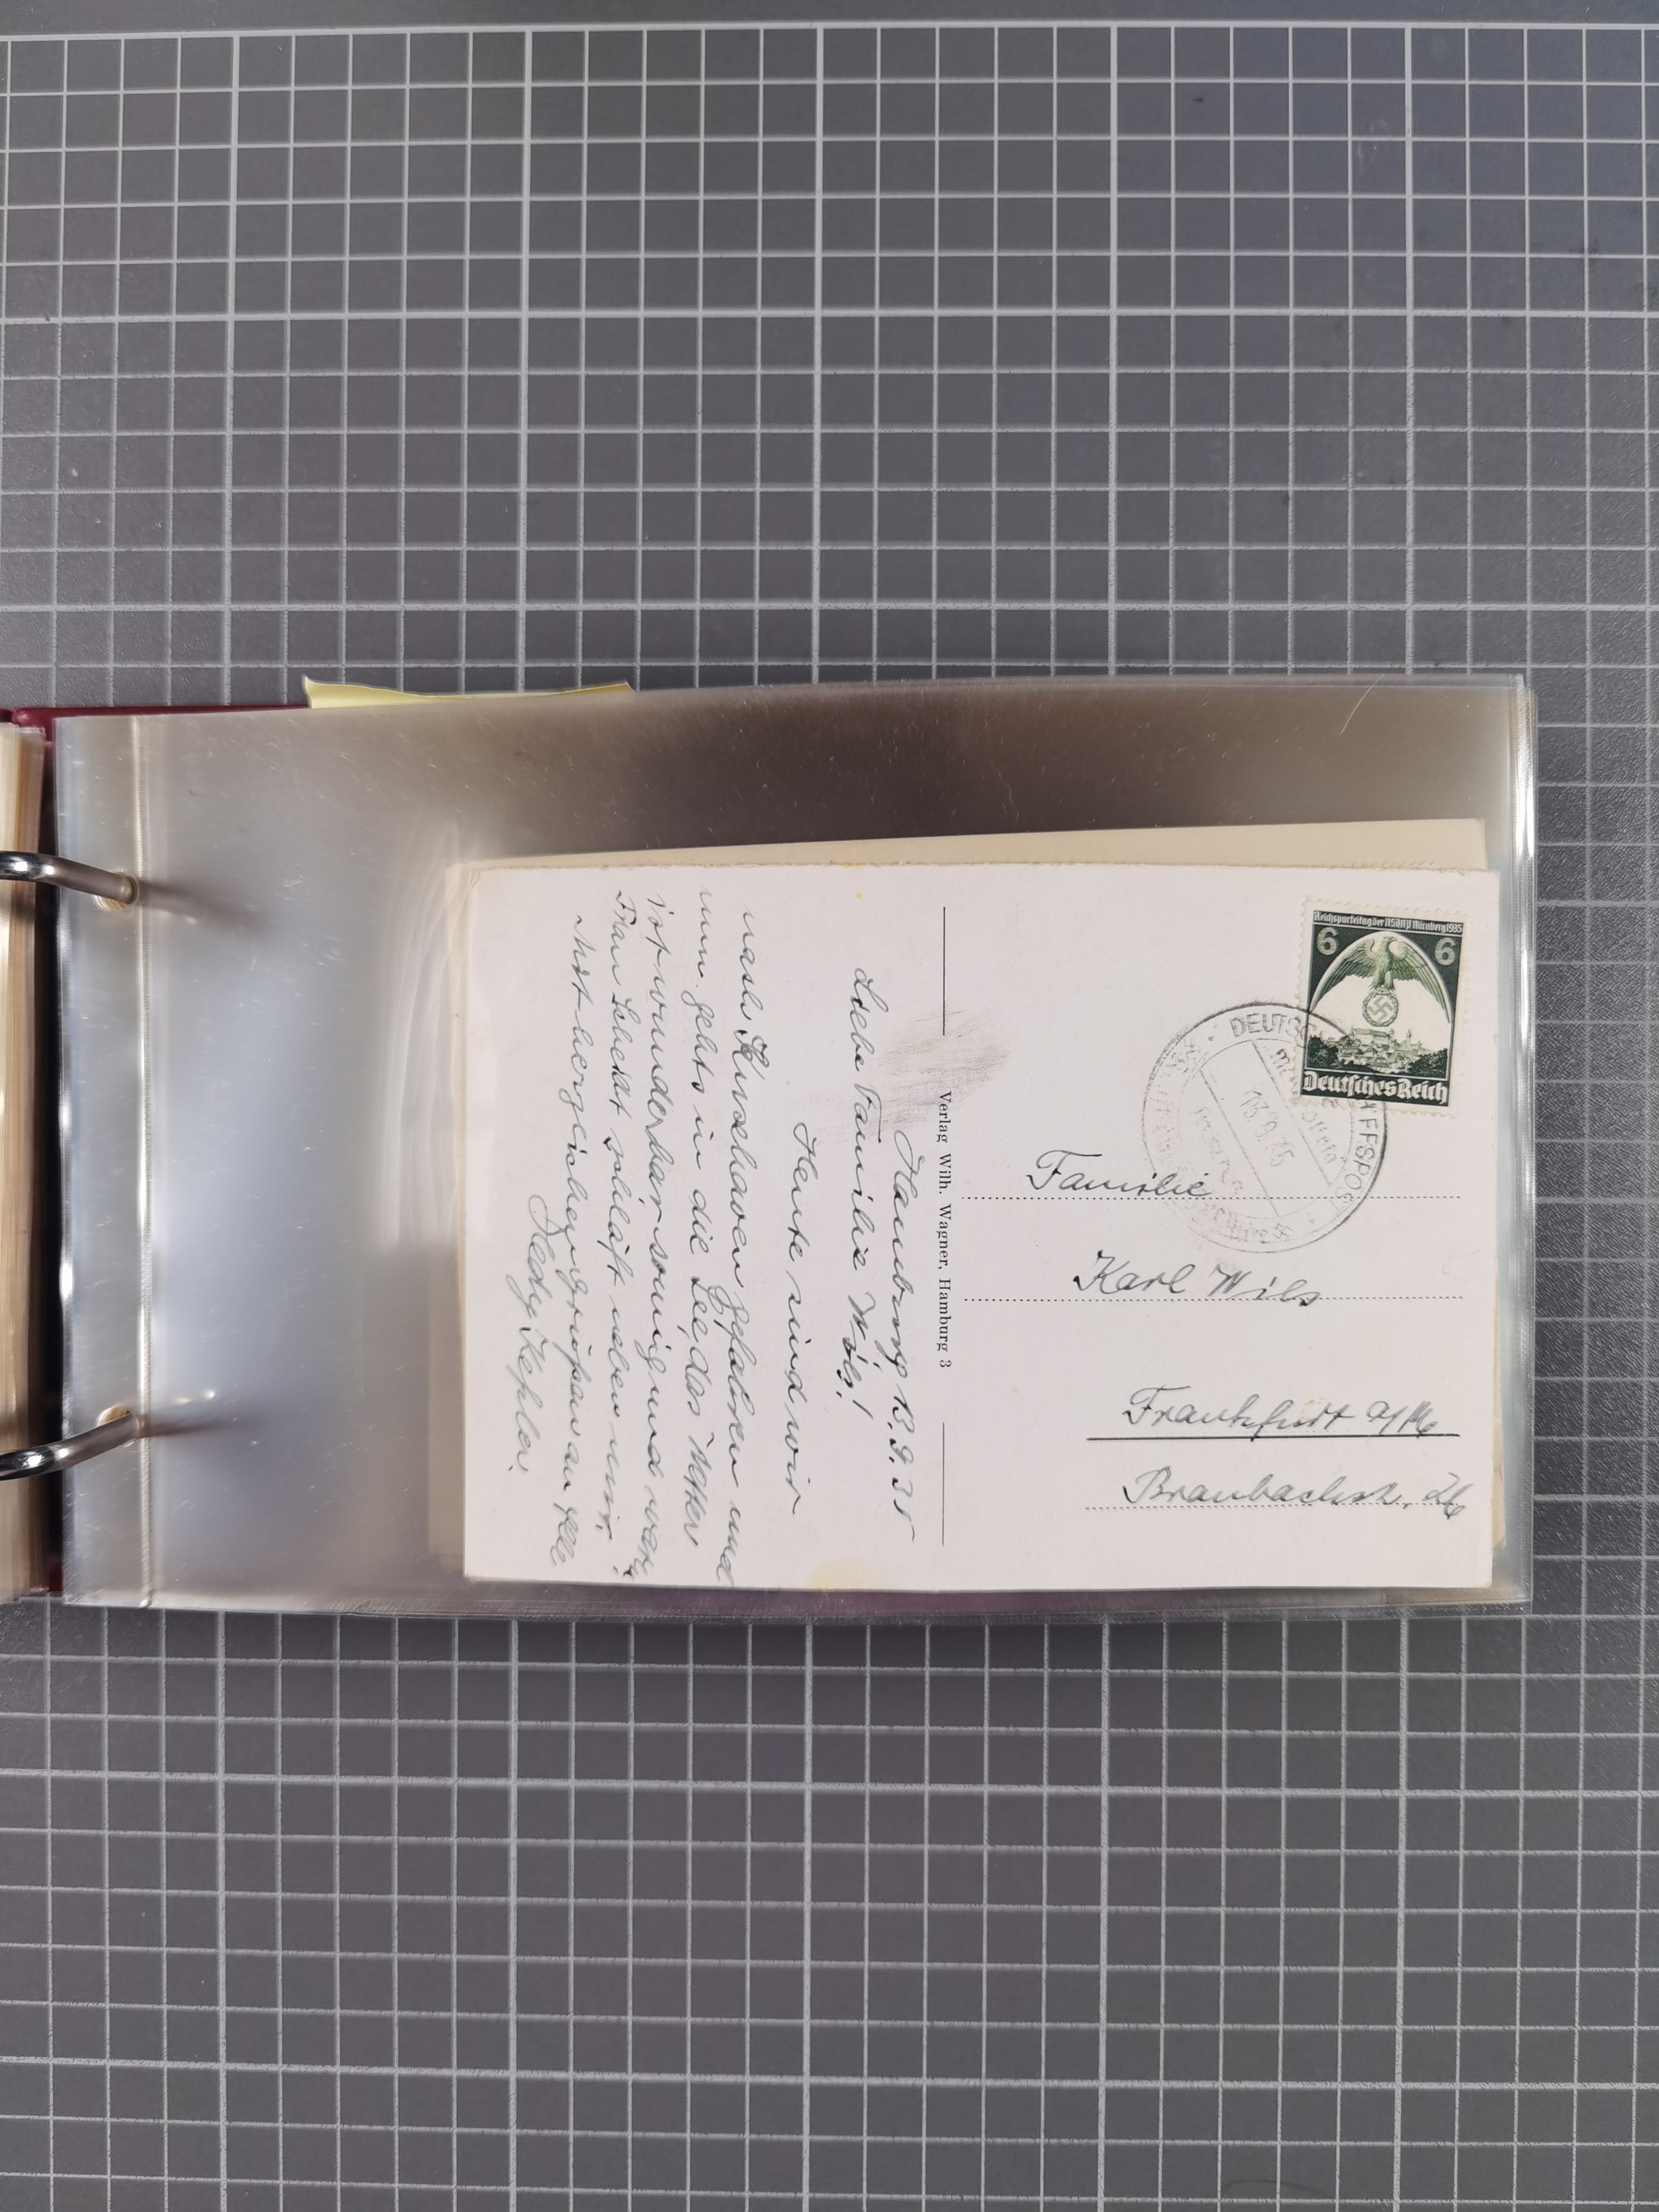 Hamburg 13.9.35
Liebe Familie Wils!
Heute sind wir
nach Kuxhaven gefahren und
nun gehts in die See, das Wetter
ist wunderbar sonnig und warm
Frau schläft neben mir.
Mit herzlichen Grüßen an Alle
Hedy Kepler.
Verlag Wilh. Wagner, Hamburg 3
Reichsparteitag der NSDAP Nürnberg 1935
6 6
Deutsches Reich
DEUTSCHE SCHIFFSPOST
13.9.35
Familie
Karl Wils
Frankfurt a/M
Braubachstr. 26